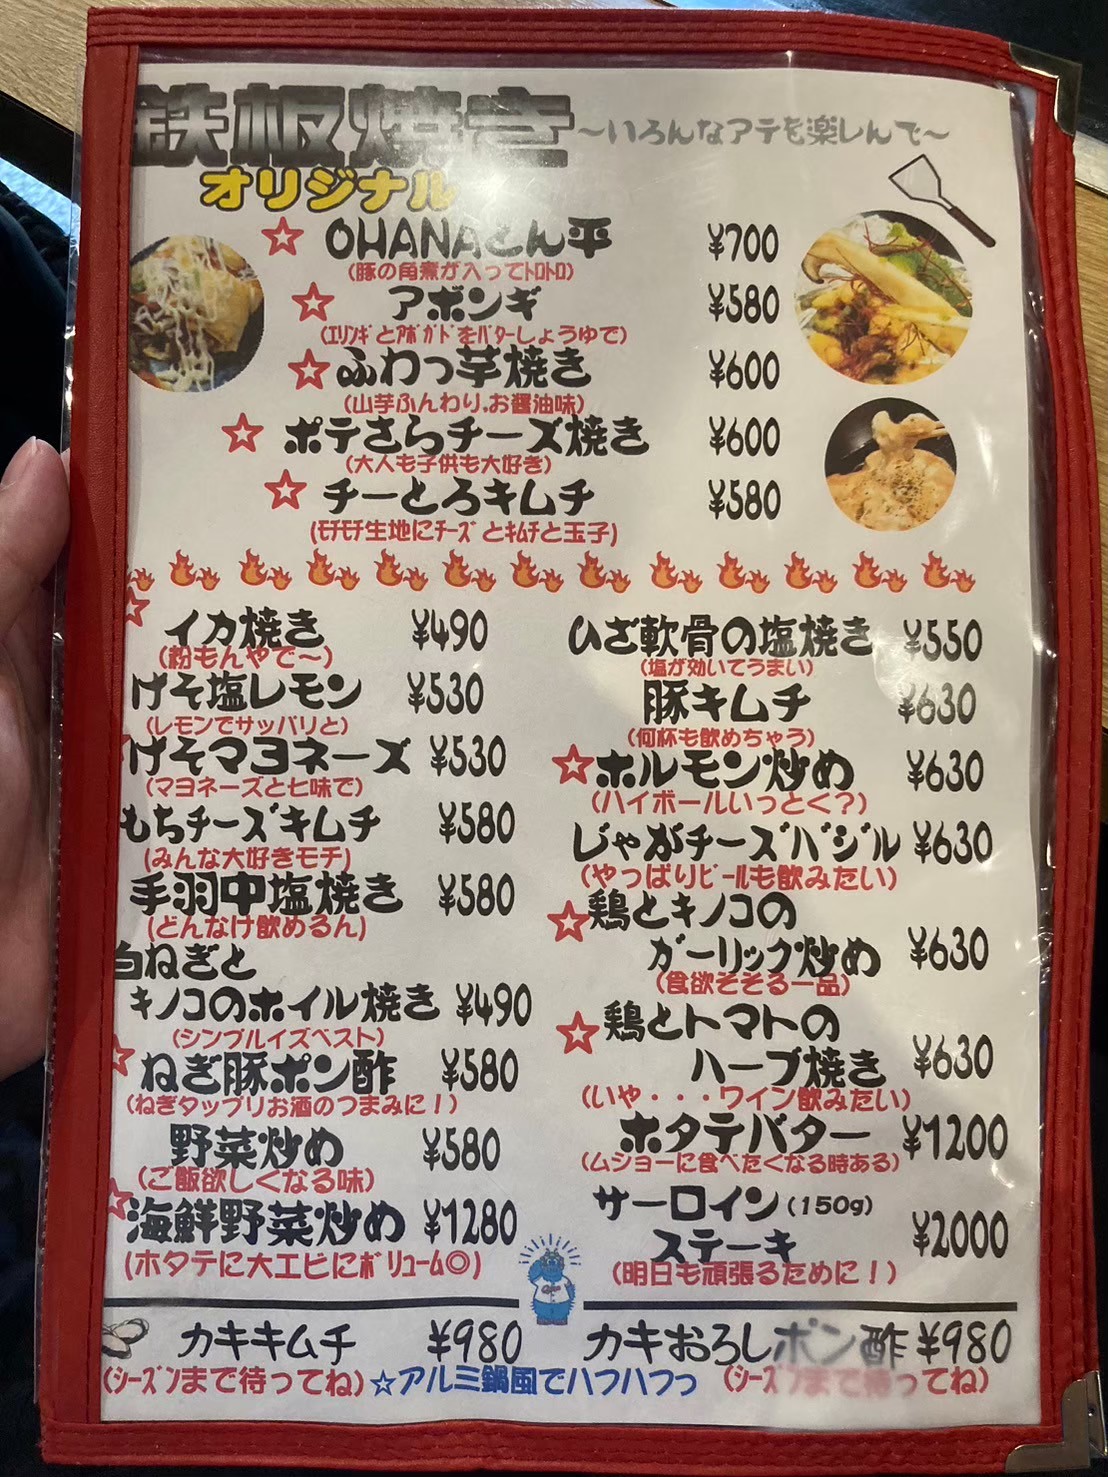 鉄板焼き ～いろんなアテを楽しんで～
オリジナル
☆ OHANAとん平 ¥700
(豚の角煮が入ってﾄﾛﾄﾛ)
☆ アボンギ ¥580
(ｴﾘﾝｷﾞとｱﾎﾞｶﾞﾄﾞをﾊﾞﾀｰしょうゆで)
☆ ふわっ芋焼き ¥600
(山芋ふんわり.お醤油味)
☆ ポテさらチーズ焼き ¥600
(大人も子供も大好き)
☆ チーとろキムチ ¥580
(ﾓﾁﾓﾁ生地にﾁｰｽﾞとｷﾑﾁと玉子)
☆ イカ焼き ¥490
(粉もんやで～)
げそ塩レモン ¥530
(レモンでサッパリと)
げそマヨネーズ ¥530
(マヨネーズと七味で)
もちチーズキムチ ¥580
(みんな大好きモチ)
手羽中塩焼き ¥580
(どんなけ飲めるん)
白ねぎと
キノコのホイル焼き ¥490
(シンプルイズベスト)
☆ ねぎ豚ポン酢 ¥580
(ねぎタップリお酒のつまみに！)
野菜炒め ¥580
(ご飯欲しくなる味)
☆ 海鮮野菜炒め ¥1280
(ホタテに大エビにﾎﾞﾘｭｰﾑ◎)
ひざ軟骨の塩焼き ¥550
(塩が効いてうまい)
豚キムチ ¥630
(何杯も飲めちゃう)
☆ホルモン炒め ¥630
(ハイボールいっとく?)
じゃがチーズバジル ¥630
(やっぱりﾋﾞｰﾙも飲みたい)
☆鶏とキノコの
ガーリック炒め ¥630
(食欲そそる一品)
☆鶏とトマトの
ハーブ焼き ¥630
(いや・・・ワイン飲みたい)
ホタテバター ¥1200
(ムショーに食べたくなる時ある)
サーロイン(150g)
ステーキ ¥2000
(明日も頑張るために！)
カキキムチ ¥980 カキおろしポン酢 ¥980
(ｼｰｽﾞﾝまで待ってね) ☆アルミ鍋風でハフハフっ (ｼｰｽﾞﾝまで待ってね)